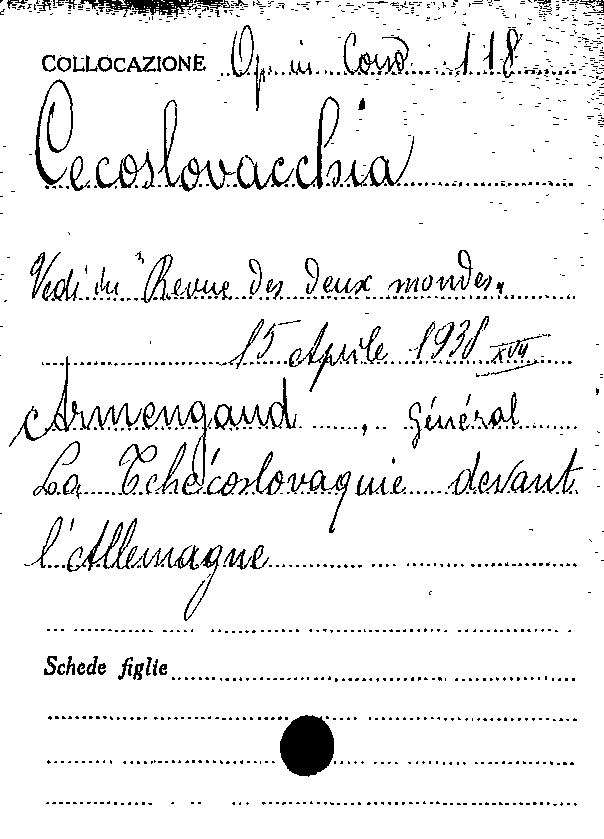 COLLOCAZIONE Op. in Corso 118
Cecoslovacchia
Vedi in "Revue des deux mondes„
15 Aprile 1938 XVI
Armengaud, Général
La Tchécoslovaquie devant
l'Allemagne
Schede figlie